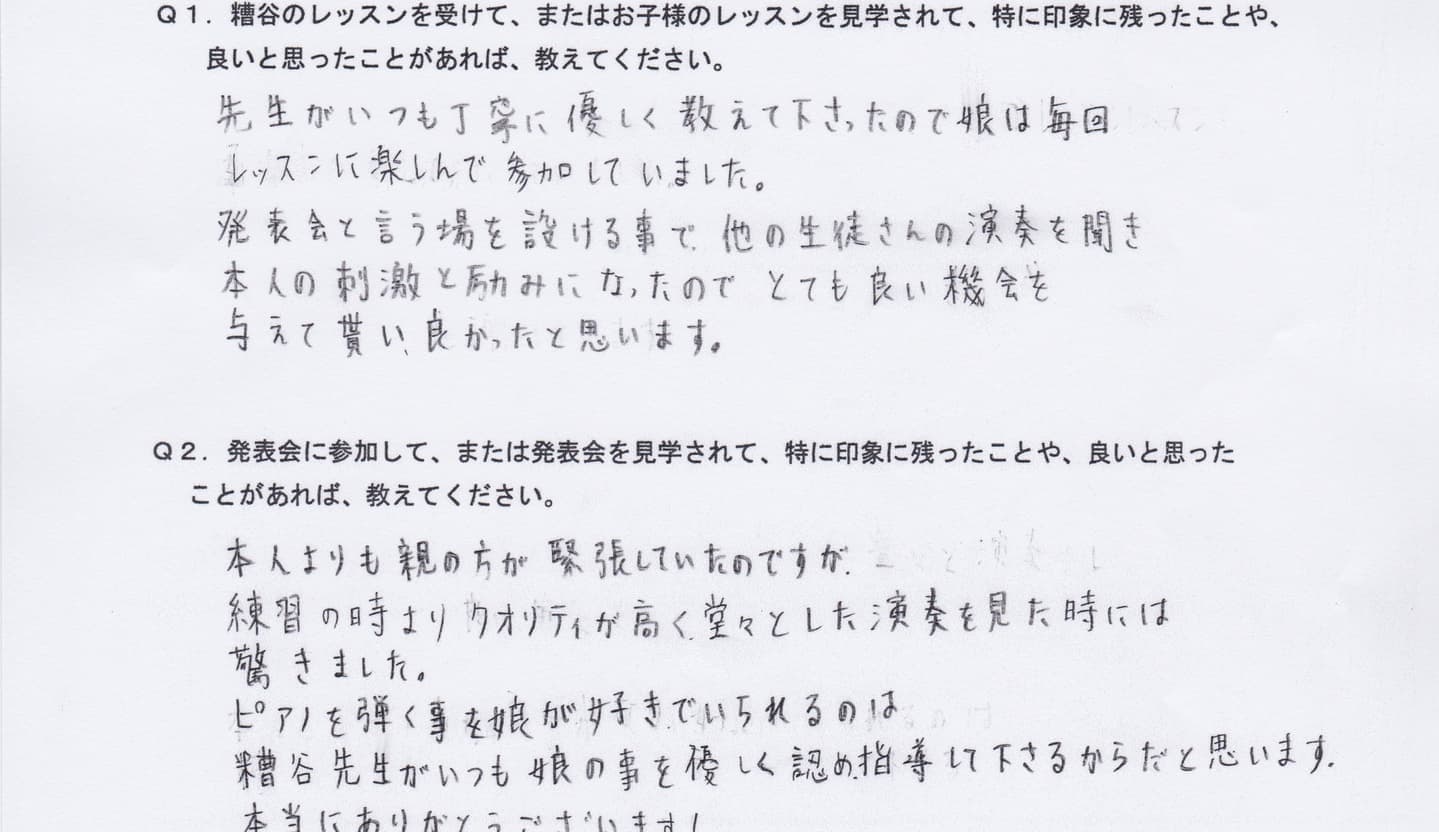 Q1．糟谷のレッスンを受けて、またはお子様のレッスンを見学されて、特に印象に残ったことや、
良いと思ったことがあれば、教えてください。
先生がいつも丁寧に優しく教えて下さったので娘は毎回
レッスンに楽しんで参加していました。
発表会と言う場を設ける事で、他の生徒さんの演奏を聞き
本人の刺激と励みになったのでとても良い機会を
与えて貰い、良かったと思います。
Q2．発表会に参加して、または発表会を見学されて、特に印象に残ったことや、良いと思った
ことがあれば、教えてください。
本人よりも親の方が緊張していたのですが、
練習の時よりクオリティが高く、堂々とした演奏を見た時には
驚きました。
ピアノを弾く事を娘が好きでいられるのは
糟谷先生がいつも娘の事を優しく認め、指導して下さるからだと思います。
本当にありがとうございます！